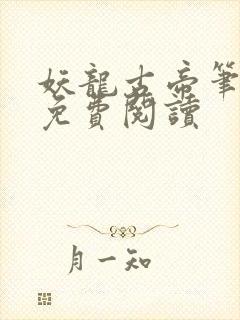 妖龍古帝筆
免費閱讀
月一知